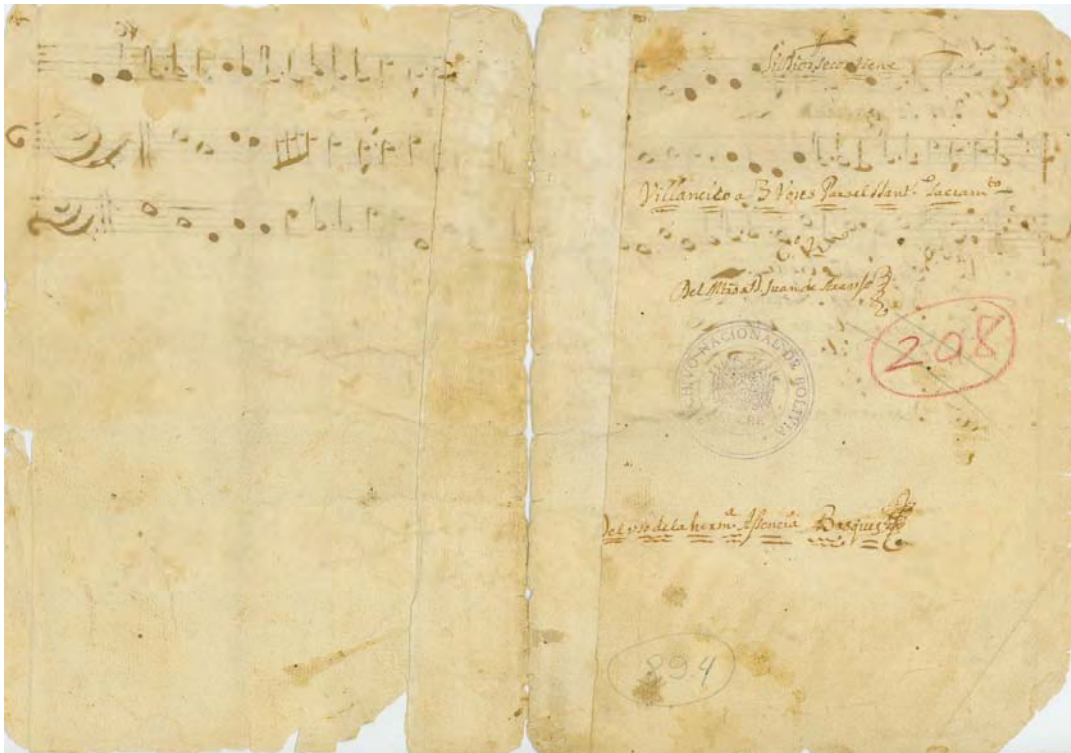 Si Dios se contiene
Villancico a 3 Voses Para el Sant.º Sacram.to
Del Mro D. Juan de Araujo
208
ARCHIVO NACIONAL DE BOLIVIA
SUCRE
Del uso de la herm.a Assencia Basques
894